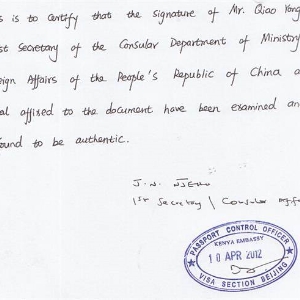 s is to certify that the signature of Mr. Qiao Yong
st Secretary of the Consular Department of Ministry
eign Affairs of the People's Republic of China a
al affixed to the document have been examined and
ound to be authentic.
J.N.
1st Secretary / Consular
PASSPORT CONTROL OFFICER
KENYA EMBASSY
10 APR 2012
VISA SECTION BEIJING